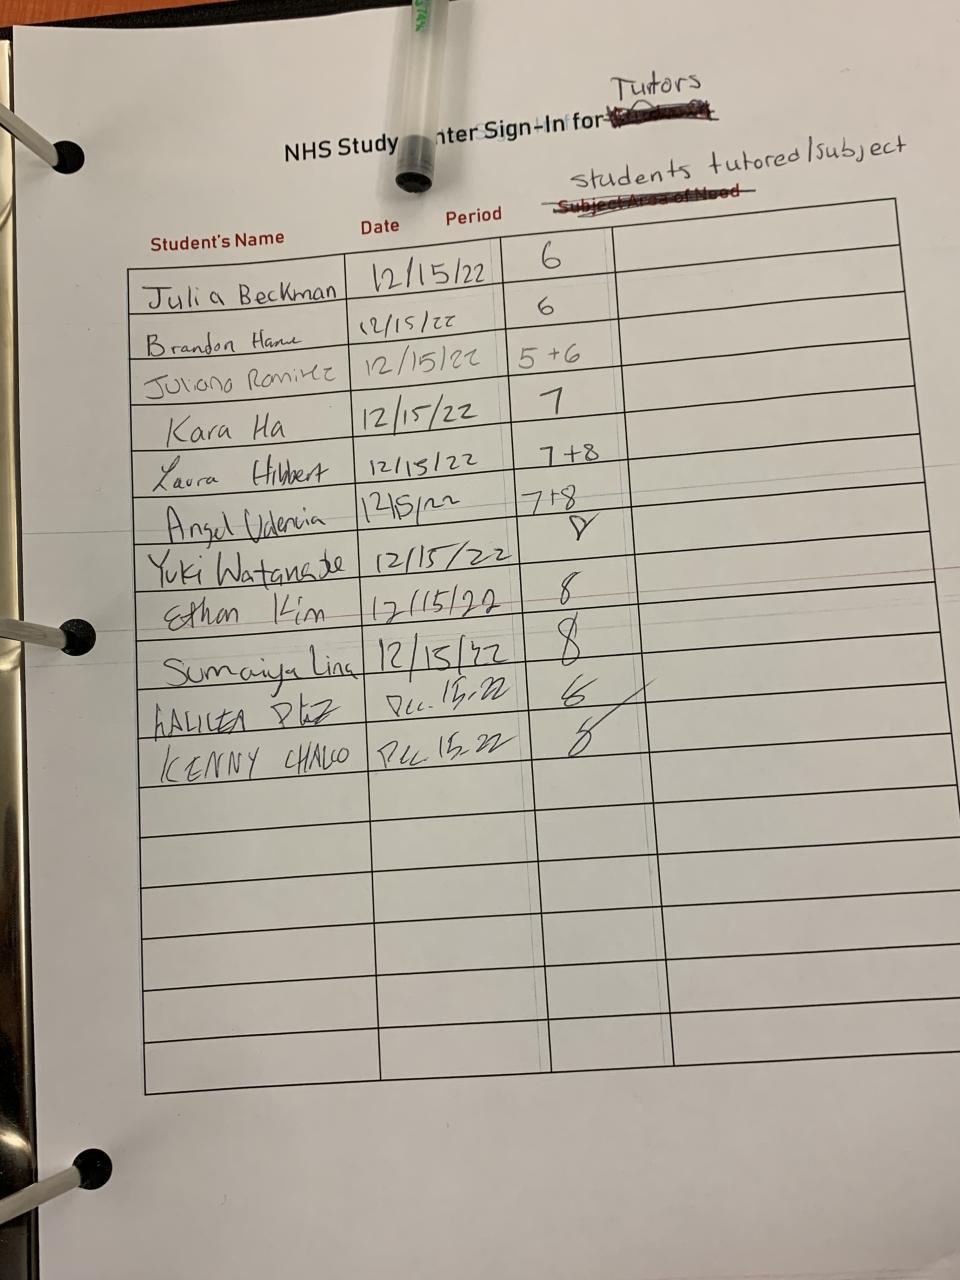 374%
Tutors
NHS Study nter Sign-In for
students tutored/subject
Subject Area of Need
Student's Name Date Period
Julia Beckman 12/15/22 6
Brandon 12/15/22 6
Juliana Ramirez 12/15/22 5+6
Kara Ha 12/15/22 7
Laura Hibbert 12/15/22 7+8
Angel 12/15/22 7+8
Yuki Watanabe 12/15/22 8
Ethan Kim 12/15/22 8
Sumaiya Lina 12/15/22 8
Dec. 15. 22
KENNY Dec. 15. 22